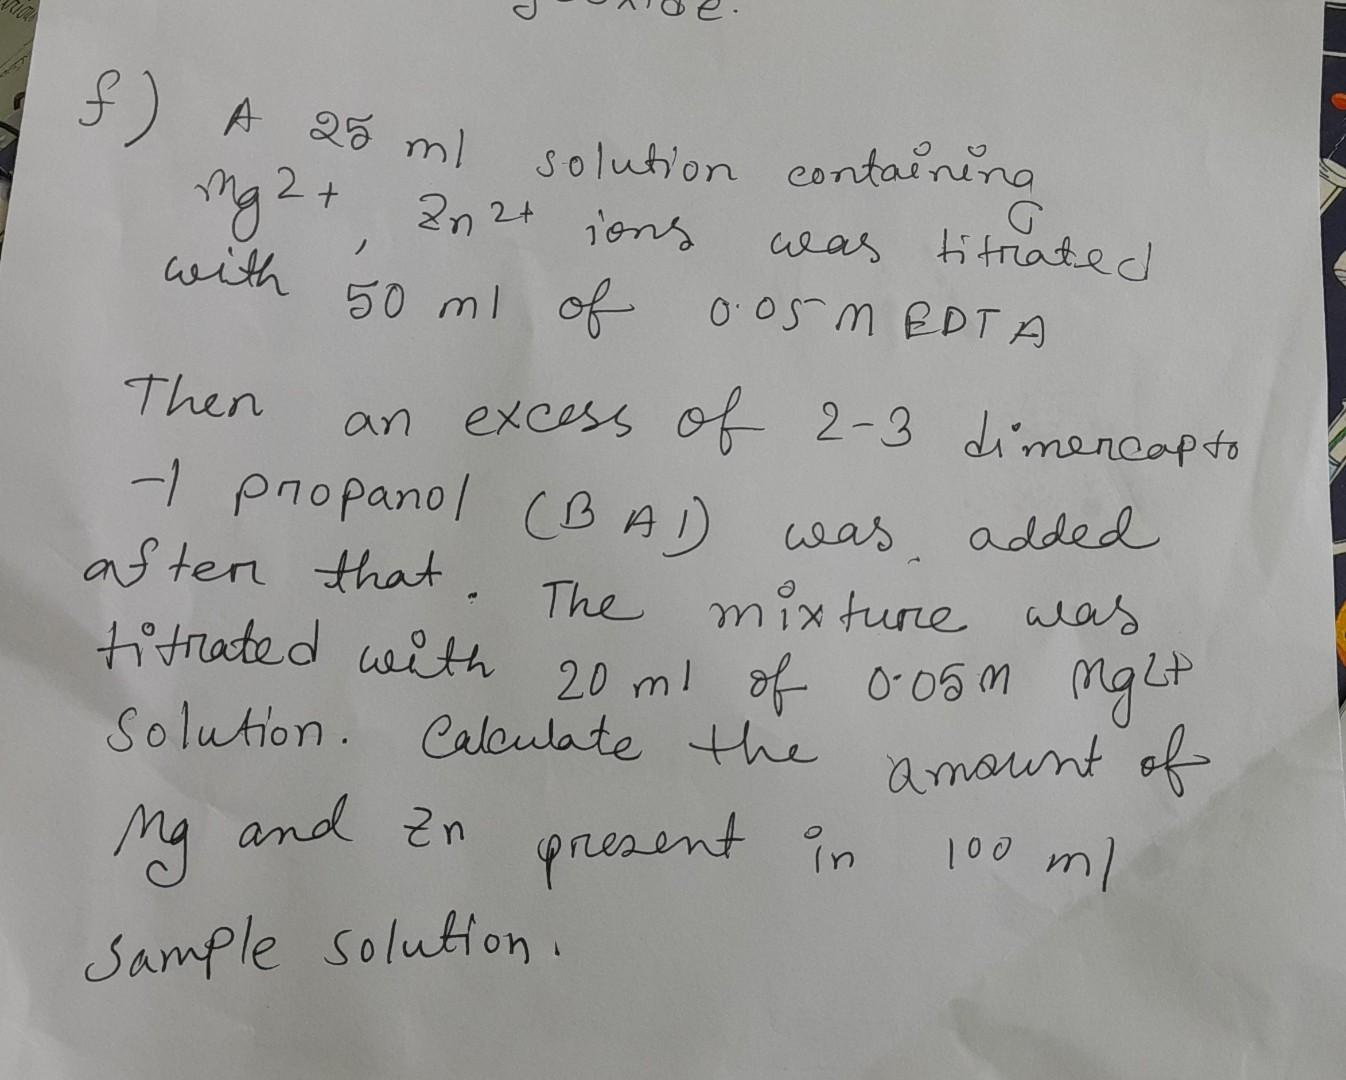 f) A 25 ml solution containing
Mg2+, Zn2+ ions was titrated
with 50 ml of 0.05 M EDTA
Then an excess of 2-3 dimercapto
-1 propanol (BAl) was added
after that. The mixture was
titrated with 20 ml of 0.05 M Mg2+
solution. Calculate the amount of
Mg and Zn present in 100 ml
sample solution.